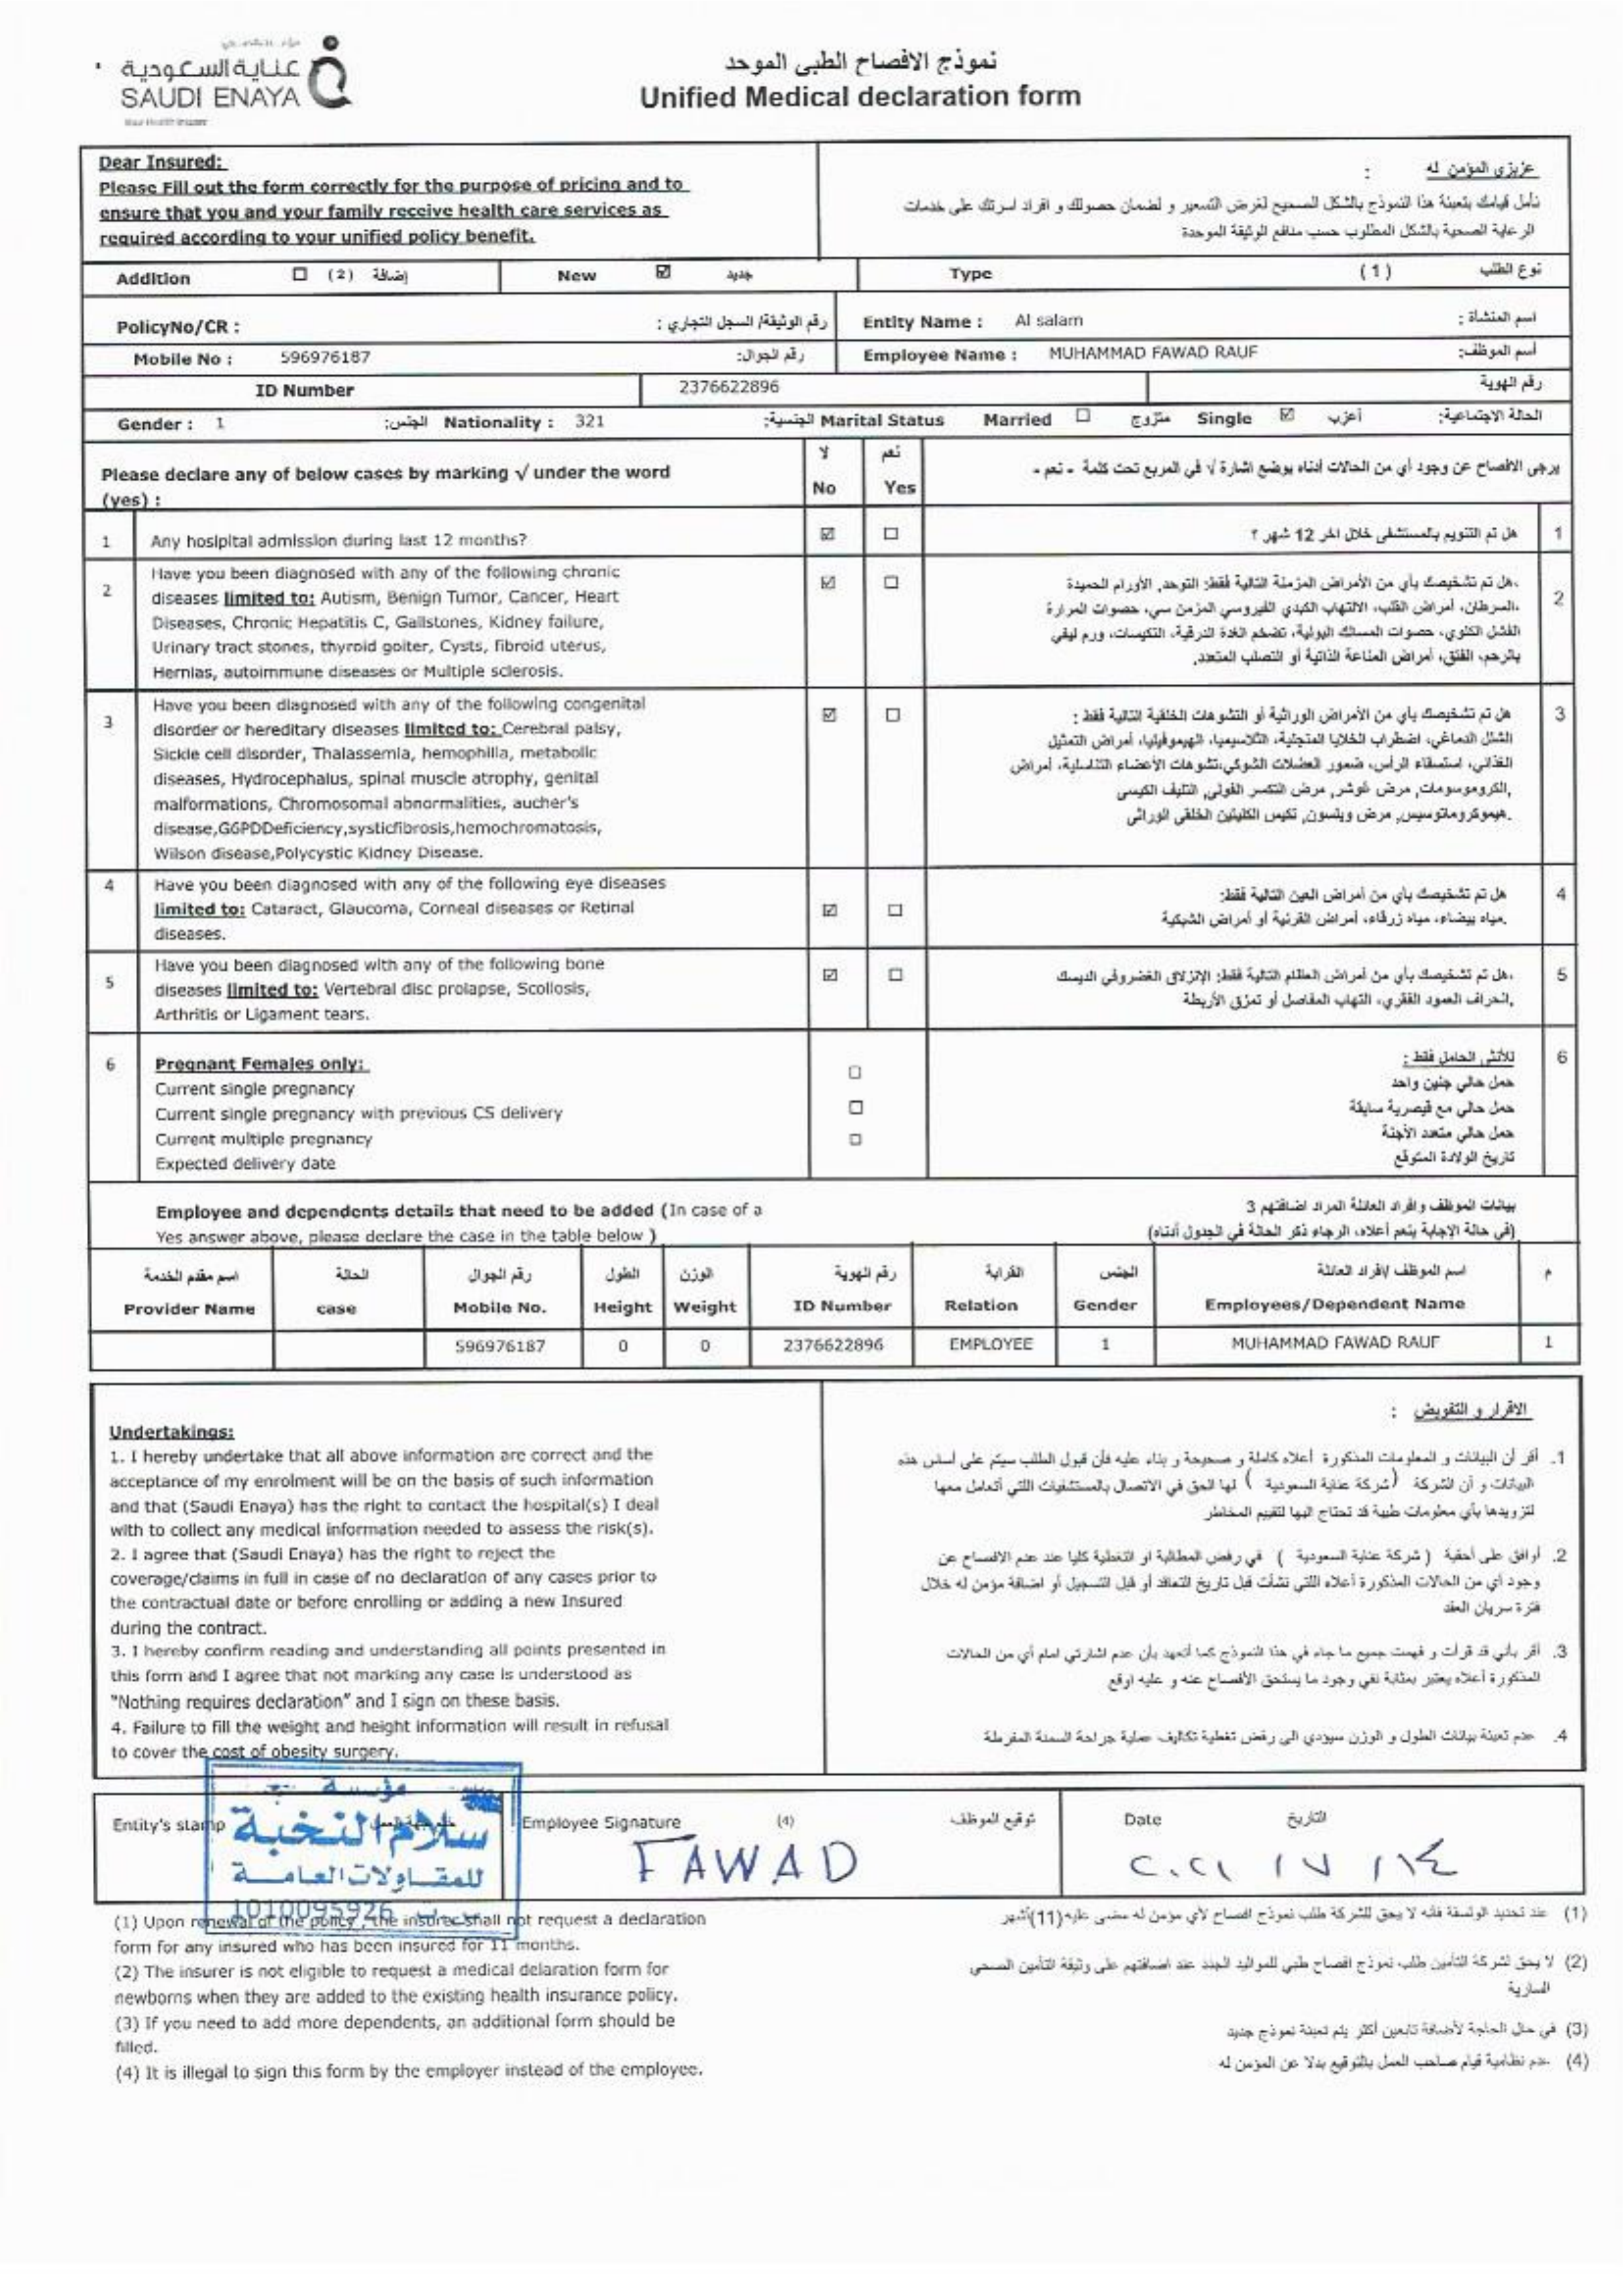 عناية السعودية
SAUDI ENAYA
نموذج الافصاح الطبي الموحد
Unified Medical declaration form
Dear Insured:
Please Fill out the form correctly for the purpose of pricing and to
ensure that you and your family receive health care services as
required according to your unified policy benefit.
عزيزي المؤمن له :
نأمل قيامك بتعبئة هذا النموذج بالشكل الصحيح لغرض التسعير و لضمان حصولك و افراد اسرتك على خدمات
الرعاية الصحية بالشكل المطلوب حسب منافع الوثيقة الموحدة
Addition ☐ (2) إضافة New ☑ جديد Type (1) نوع الطلب
PolicyNo/CR : رقم الوثيقة/ السجل التجاري : Entity Name : Al salam اسم المنشاة :
Mobile No : 596976187 رقم الجوال: Employee Name : MUHAMMAD FAWAD RAUF أسم الموظف:
ID Number 2376622896 رقم الهوية
Gender : 1 الجنس: Nationality : 321 الجنسية: Marital Status Married ☐ متزوج Single ☑ أعزب الحالة الاجتماعية:
Please declare any of below cases by marking √ under the word
(yes) :
لا نعم
No Yes
يرجى الافصاح عن وجود أي من الحالات أدناه بوضع اشارة √ في المربع تحت كلمة - نعم -
1 Any hosipital admission during last 12 months? ☑ ☐ هل تم التنويم بالمستشفى خلال اخر 12 شهر ؟ 1
2 Have you been diagnosed with any of the following chronic
diseases limited to: Autism, Benign Tumor, Cancer, Heart
Diseases, Chronic Hepatitis C, Gallstones, Kidney failure,
Urinary tract stones, thyroid goiter, Cysts, fibroid uterus,
Hernias, autoimmune diseases or Multiple sclerosis.
☑ ☐
هل تم تشخيصك بأي من الأمراض المزمنة التالية فقط: التوحد, الأورام الحميدة,
السرطان، أمراض القلب، الالتهاب الكبدي الفيروسي المزمن سي، حصوات المرارة،
الفشل الكلوي، حصوات المسالك البولية، تضخم الغدة الدرقية، التكيسات، ورم ليفي
بالرحم، الفتق، أمراض المناعة الذاتية أو التصلب المتعدد. 2
3 Have you been diagnosed with any of the following congenital
disorder or hereditary diseases limited to: Cerebral palsy,
Sickle cell disorder, Thalassemia, hemophilia, metabolic
diseases, Hydrocephalus, spinal muscle atrophy, genital
malformations, Chromosomal abnormalities, aucher's
disease,G6PDDeficiency,systicfibrosis,hemochromatosis,
Wilson disease,Polycystic Kidney Disease.
☑ ☐
هل تم تشخيصك بأي من الأمراض الوراثية أو التشوهات الخلقية التالية فقط :
الشلل الدماغي، اضطراب الخلايا المنجلية، الثلاسيميا، الهيموفيليا، أمراض التمثيل
الغذائي، استسقاء الرأس، ضمور العضلات الشوكي،تشوهات الأعضاء التناسلية، أمراض
الكروموسومات, مرض غوشر, مرض التكسر الفولي, التليف الكيسي,
هيموكروماتوسيس, مرض ويلسون, تكيس الكليتين الخلقي الوراثي. 3
4 Have you been diagnosed with any of the following eye diseases
limited to: Cataract, Glaucoma, Corneal diseases or Retinal
diseases.
☑ ☐
هل تم تشخيصك بأي من أمراض العين التالية فقط:
مياه بيضاء، مياه زرقاء، أمراض القرنية أو أمراض الشبكية. 4
5 Have you been diagnosed with any of the following bone
diseases limited to: Vertebral disc prolapse, Scoliosis,
Arthritis or Ligament tears.
☑ ☐
هل تم تشخيصك بأي من أمراض العظام التالية فقط: الإنزلاق الغضروفي الديسك،
انحراف العمود الفقري، التهاب المفاصل أو تمزق الأربطة. 5
6 Pregnant Females only: ☐ للأنثى الحامل فقط : 6
Current single pregnancy حمل حالي جنين واحد
Current single pregnancy with previous CS delivery ☐ حمل حالي مع قيصرية سابقة
Current multiple pregnancy ☐ حمل حالي متعدد الأجنة
Expected delivery date تاريخ الولادة المتوقع
Employee and dependents details that need to be added (In case of a
Yes answer above, please declare the case in the table below )
بيانات الموظف وافراد العائلة المراد اضافتهم 3
(في حالة الإجابة بنعم أعلاه، الرجاء ذكر الحالة في الجدول أدناه)
اسم مقدم الخدمة الحالة رقم الجوال الطول الوزن رقم الهوية القرابة الجنس اسم الموظف /افراد العائلة م
Provider Name case Mobile No. Height Weight ID Number Relation Gender Employees/Dependent Name
596976187 0 0 2376622896 EMPLOYEE 1 MUHAMMAD FAWAD RAUF 1
Undertakings:
1. I hereby undertake that all above information are correct and the
acceptance of my enrolment will be on the basis of such information
and that (Saudi Enaya) has the right to contact the hospital(s) I deal
with to collect any medical information needed to assess the risk(s).
2. I agree that (Saudi Enaya) has the right to reject the
coverage/claims in full in case of no declaration of any cases prior to
the contractual date or before enrolling or adding a new Insured
during the contract.
3. I hereby confirm reading and understanding all points presented in
this form and I agree that not marking any case is understood as
"Nothing requires declaration" and I sign on these basis.
4. Failure to fill the weight and height information will result in refusal
to cover the cost of obesity surgery.
الاقرار و التفويض :
1. أقر أن البيانات و المعلومات المذكورة أعلاه كاملة و صحيحة و بناء عليه فأن قبول الطلب سيتم على أساس هذه
البيانات و أن الشركة (شركة عناية السعودية ) لها الحق في الاتصال بالمستشفيات اللتي أتعامل معها
لتزويدها بأي معلومات طبية قد تحتاج اليها لتقييم المخاطر
2. أوافق على أحقية ( شركة عناية السعودية ) في رفض المطالبة او التغطية كليا عند عدم الافصاح عن
وجود أي من الحالات المذكورة أعلاه اللتي نشأت قبل تاريخ التعاقد أو قبل التسجيل أو اضافة مؤمن له خلال
فترة سريان العقد
3. أقر بأني قد قرأت و فهمت جميع ما جاء في هذا النموذج كما أتعهد بأن عدم اشارتي امام أي من الحالات
المذكورة أعلاه يعتبر بمثابة نفي وجود ما يستحق الأفصاح عنه و عليه اوقع
4. عدم تعبئة بيانات الطول و الوزن سيودي الى رفض تغطية تكاليف عملية جراحة السمنة المفرطة
Entity's stamp Employee Signature (4) توقيع الموظف Date التاريخ
مؤسسة
سلام النخبة
للمقاولات العامة
1010095926
FAWAD
٢٠٢١ / ٧ / ١٤
(1) Upon renewal of the policy , the insurer shall not request a declaration
form for any insured who has been insured for 11 months.
(2) The insurer is not eligible to request a medical delaration form for
newborns when they are added to the existing health insurance policy.
(3) If you need to add more dependents, an additional form should be
filled.
(4) It is illegal to sign this form by the employer instead of the employee.
(1) عند تجديد الوثيقة فأنه لا يحق للشركة طلب نموذج افصاح لأي مؤمن له مضى عليه(11)أشهر
(2) لا يحق لشركة التأمين طلب نموذج افصاح طبي للمواليد الجدد عند اضافتهم على وثيقة التأمين الصحي
السارية
(3) في حال الحاجة لأضافة تابعين أكثر يتم تعبئة نموذج جديد
(4) عدم نظامية قيام صاحب العمل بالتوقيع بدلا عن المؤمن له